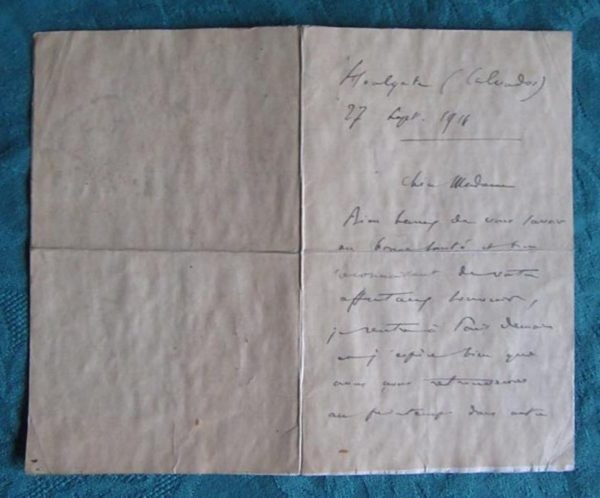 Houlgate (Calvados)
27 Sept. 1916
Chère Madame
Bien heureux de vous savoir
en bonne santé et bien
reconnaissant de votre
affectueux souvenir,
je rentre à Paris demain
et j'espère bien que
nous nous retrouverons
au printemps dans notre